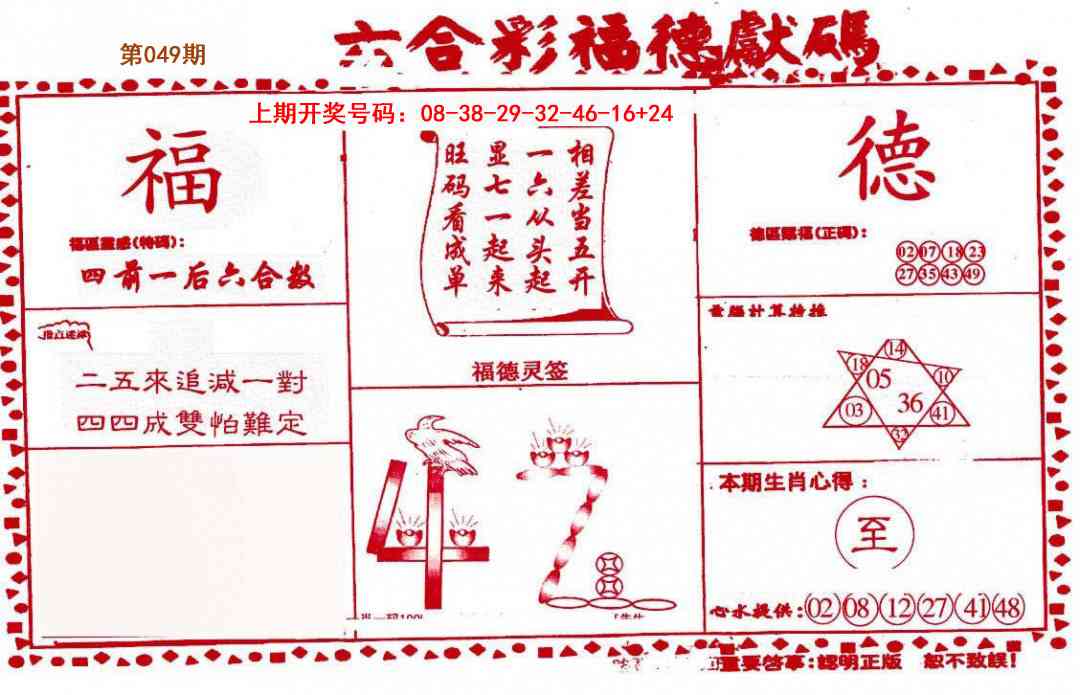 第049期
六合彩福德獻碼
上期开奖号码：08-38-29-32-46-16+24
福
福區靈感(特碼)：
四前一后六合数
二五來追減一對
四四成雙怕難定
相差当五开
一六从头起
显七一起来
旺码看成单
福德灵签
42
德
德區賜福(正碼)：
02 07 18 23
27 35 43 49
電腦計算特推
14
18 05 10
03 36 41
33
本期生肖心得：
至
心水提供：02 08 12 27 41 48
重要啓事：認明正版 恕不致誤！